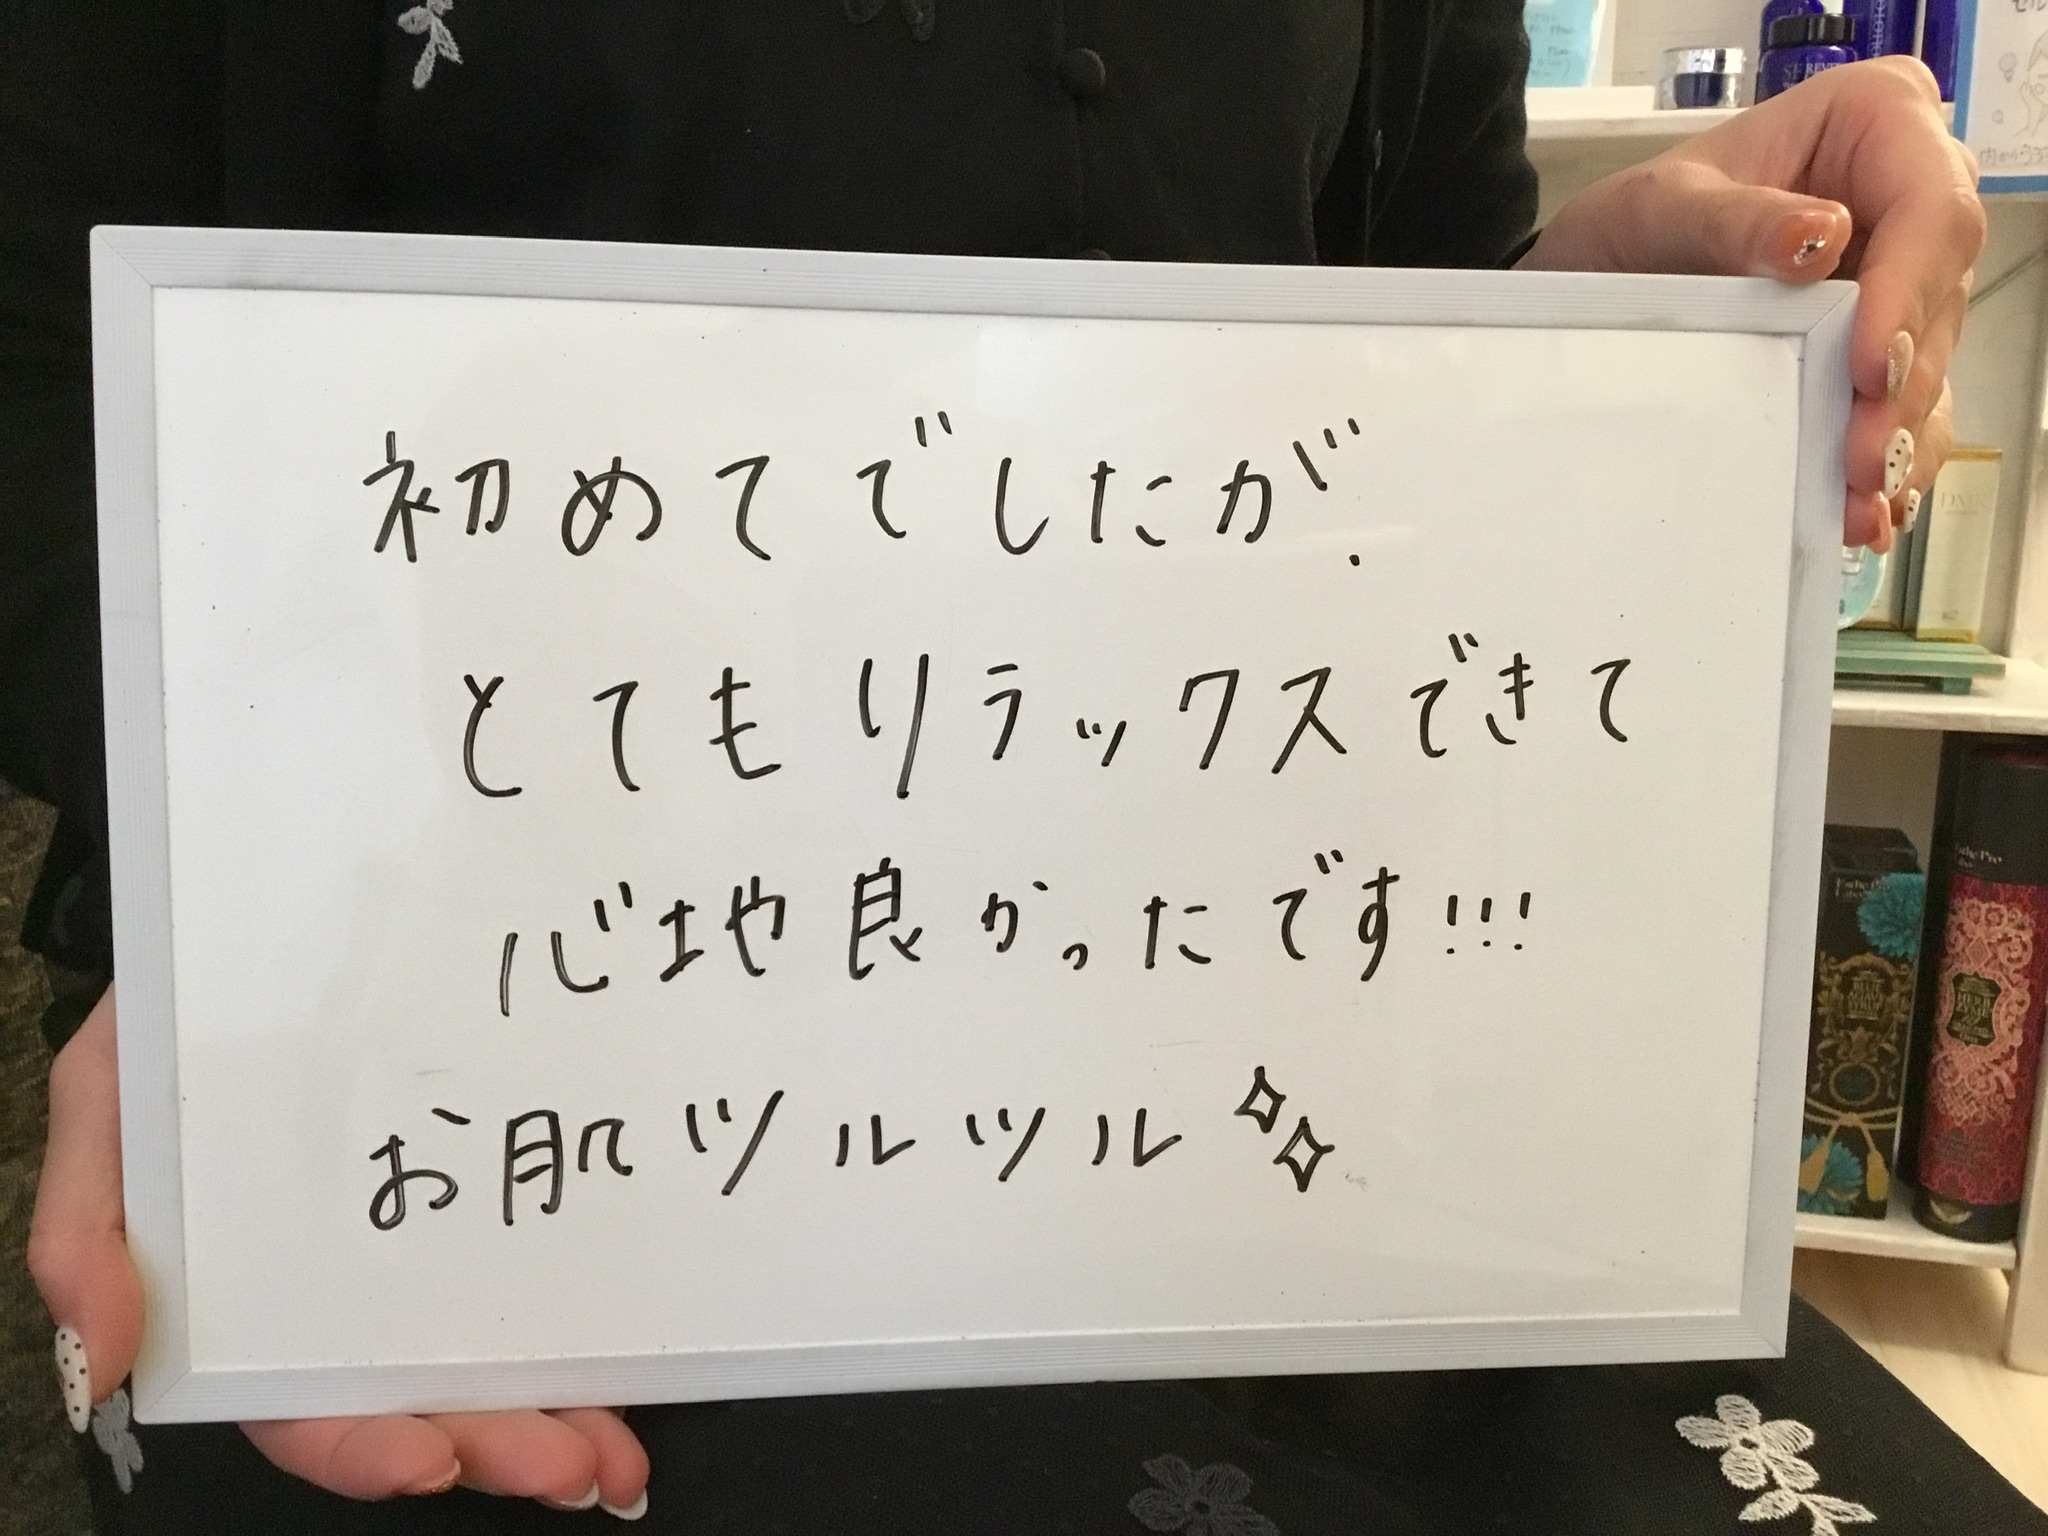 初めてでしたが.
とてもリラックスできて
心地良かったです!!!
お肌ツルツル
DMK